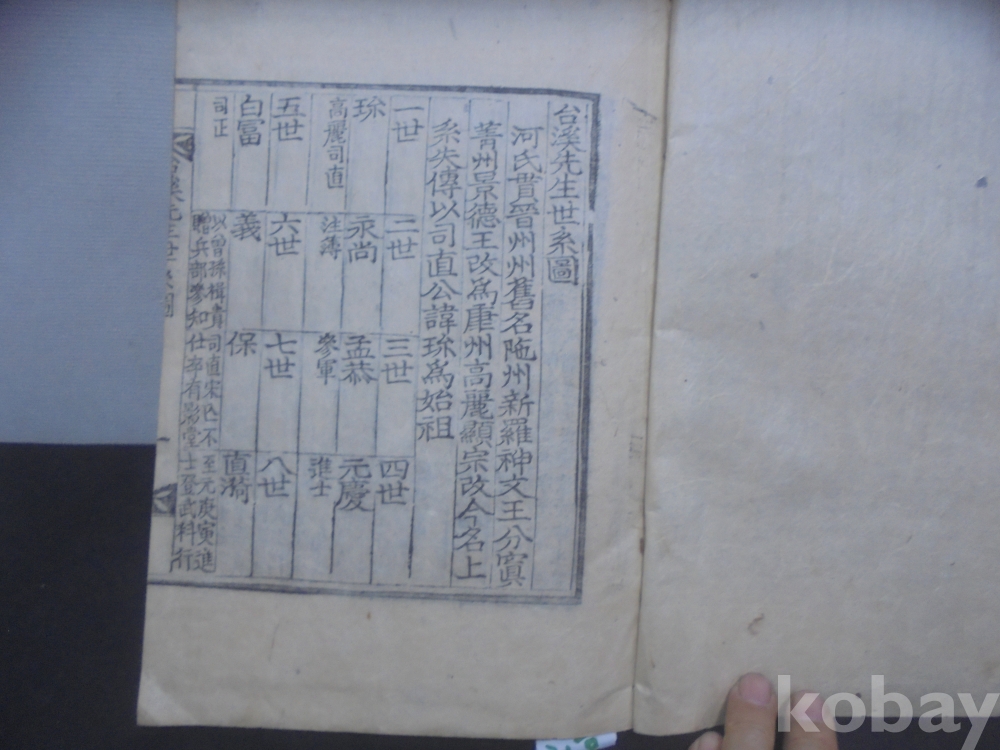 台溪先生世系圖
河氏貫晉州州舊名陁州新羅神文王分寘
菁州景德王改爲康州高麗顯宗改今名上
系失傳以司直公諱珎爲始祖
一世
二世
三世
四世
珎
永尚
孟恭
元慶
高麗司直
注簿
參軍
進士
五世
六世
七世
八世
自富
義
保
直漪
司正
以曾孫楫貴
贈兵部參知
司直宋亡不
仕卒有影堂
至元庚寅進
士登武科行
kobay